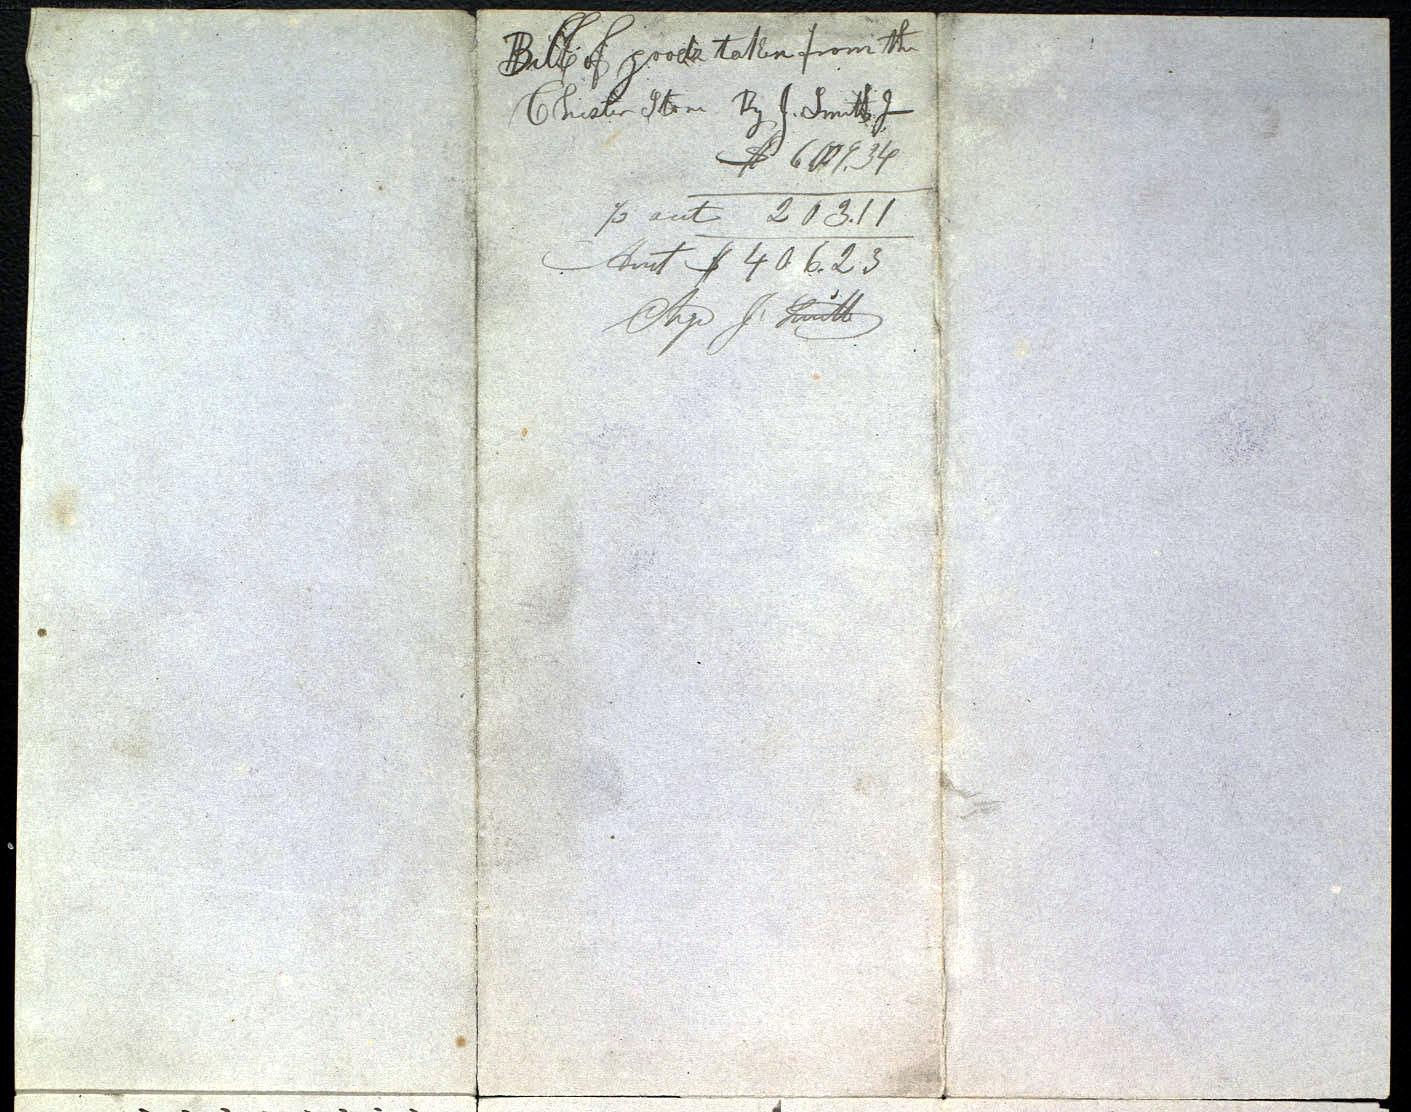 Bill of goods taken from the
Chister Store By J. Smith Jr
$ 609.34
203.11
Amt $ 406.23
Chge J. Smith